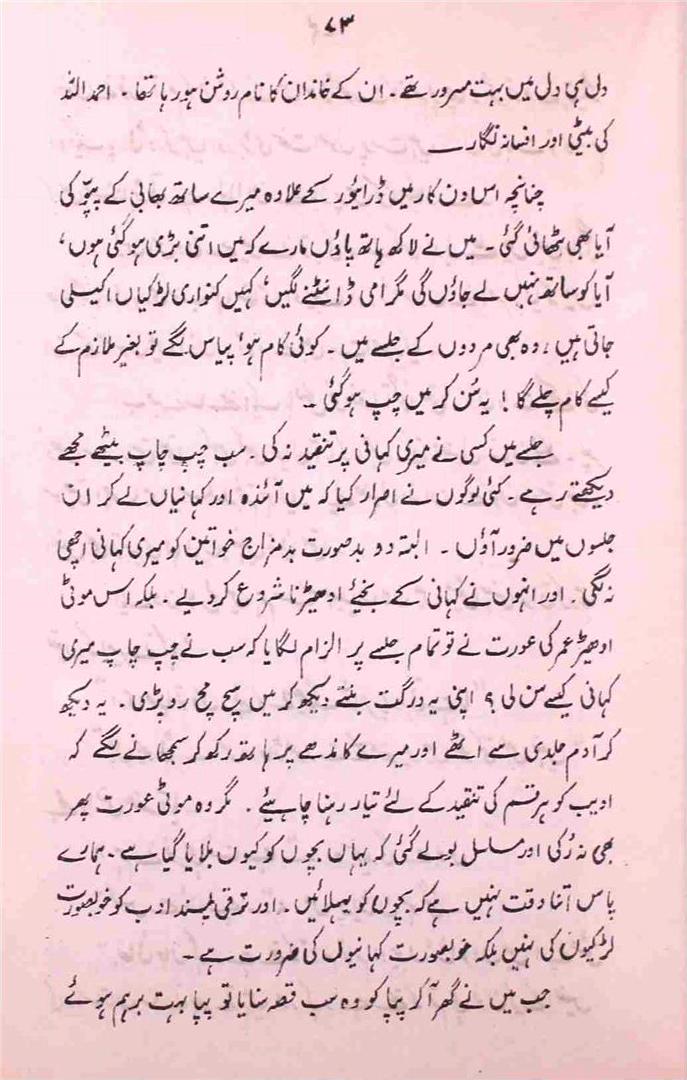 ۷۳
دل ہی دل میں بہت مسرور تھے۔ ان کے خاندان کا نام روشن ہو رہا تھا۔ احمد اللہ
کی بیٹی اور افسانہ نگار۔
چنانچہ اس دن کار میں ڈرائیور کے علاوہ میرے ساتھ بھابی کے پپّو کی
آیا بھی بٹھائی گئی۔ میں نے لاکھ ہاتھ پاؤں مارے کہ میں اتنی بڑی ہو گئی ہوں،
آیا کو ساتھ نہیں لے جاؤں گی مگر امی ڈانٹنے لگیں، کہیں کنواری لڑکیاں اکیلی
جاتی ہیں، وہ بھی مردوں کے جلسے میں۔ کوئی کام ہو، پیاس لگے تو بغیر ملازم کے
کیسے کام چلے گا! یہ سُن کر میں چپ ہو گئی۔
جلسے میں کسی نے میری کہانی پر تنقید نہ کی۔ سب چپ چاپ بیٹھے مجھے
دیکھتے رہے۔ کئی لوگوں نے اصرار کیا کہ میں آئندہ اور کہانیاں لے کر ان
جلسوں میں ضرور آؤں۔ البتہ دو بدصورت بدمزاج خواتین کو میری کہانی اچھی
نہ لگی۔ اور انہوں نے کہانی کے بخیے ادھیڑنا شروع کر دیے۔ بلکہ اس موٹی
ادھیڑ عمر کی عورت نے تو تمام جلسے پر الزام لگایا کہ سب نے چپ چاپ میری
کہانی کیسے سن لی؟ اپنی یہ درگت بنتے دیکھ کر میں سچ مچ رو پڑی۔ یہ دیکھ
کر آدم جلدی سے اٹھے اور میرے کاندھے پر ہاتھ رکھ کر سمجھانے لگے کہ
ادیب کو ہر قسم کی تنقید کے لئے تیار رہنا چاہیئے۔ مگر وہ موٹی عورت پھر
بھی نہ رُکی اور مسلسل بولے گئی کہ یہاں بچوں کو کیوں بلایا گیا ہے۔ ہمارے
پاس اتنا وقت نہیں ہے کہ بچوں کو بہلائیں۔ اور ترقی پسند ادب کو خوبصورت
لڑکیوں کی نہیں بلکہ خوبصورت کہانیوں کی ضرورت ہے۔
جب میں نے گھر آ کر پپا کو وہ سب قصہ سنایا تو پپا بہت برہم ہوئے